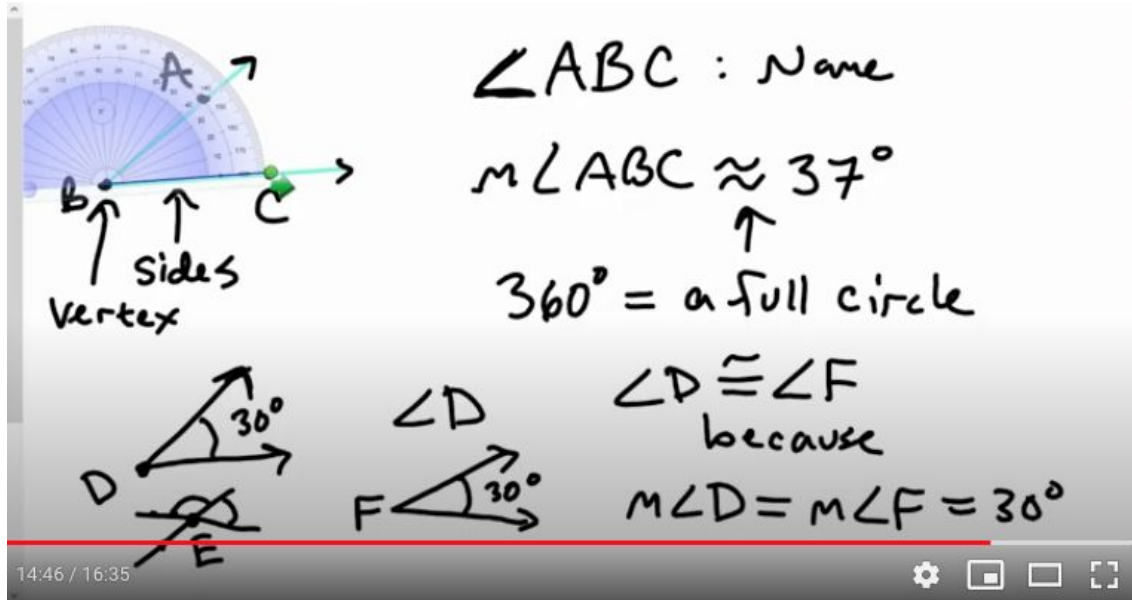 A
B
C
sides
vertex
∠ABC : Name
m∠ABC ≈ 37°
360° = a full circle
30°
D
E
∠D
F
30°
∠D ≅ ∠F
because
m∠D = m∠F = 30°
14:46 / 16:35